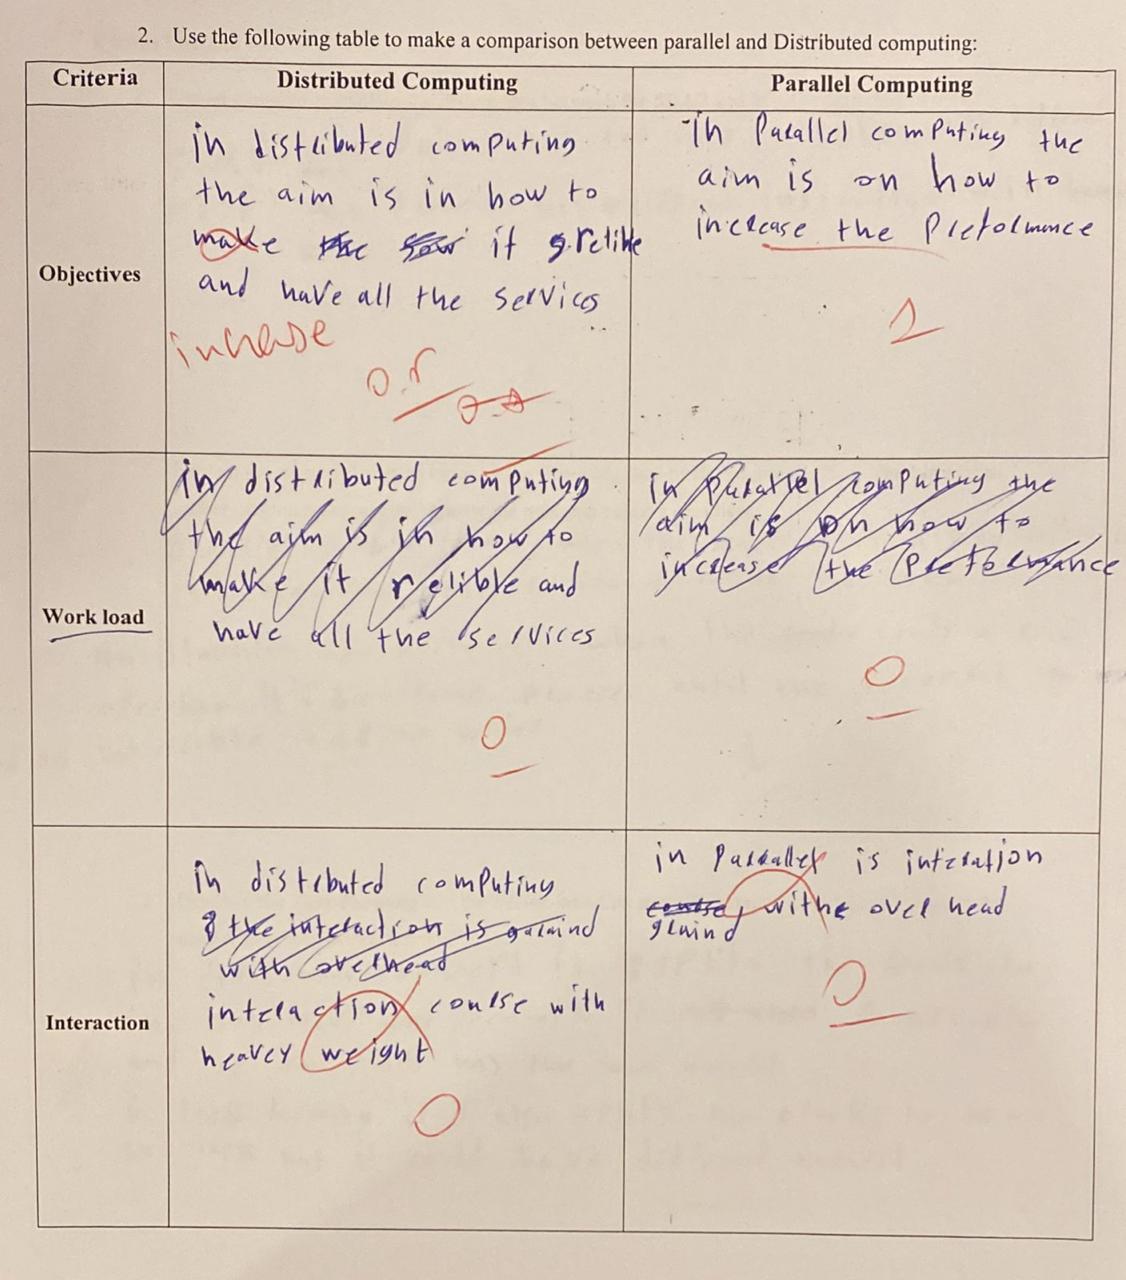 2. Use the following table to make a comparison between parallel and Distributed computing:
Criteria
Distributed Computing
Parallel Computing
Objectives
in distributed computing
the aim is in how to
make it relible
and have all the services
increase
0.5
in Parallel computing the
aim is on how to
increase the Preformance
1
Work load
in distributed computing
the aim is in how to
make it relible and
have all the services
0
in Parallel computing the
aim is on how to
increase the Preformance
0
Interaction
in distrbuted computing
the interaction is
with overhead
interaction course with
heavey weight
0
in Parrallel is interation
withe over head
0